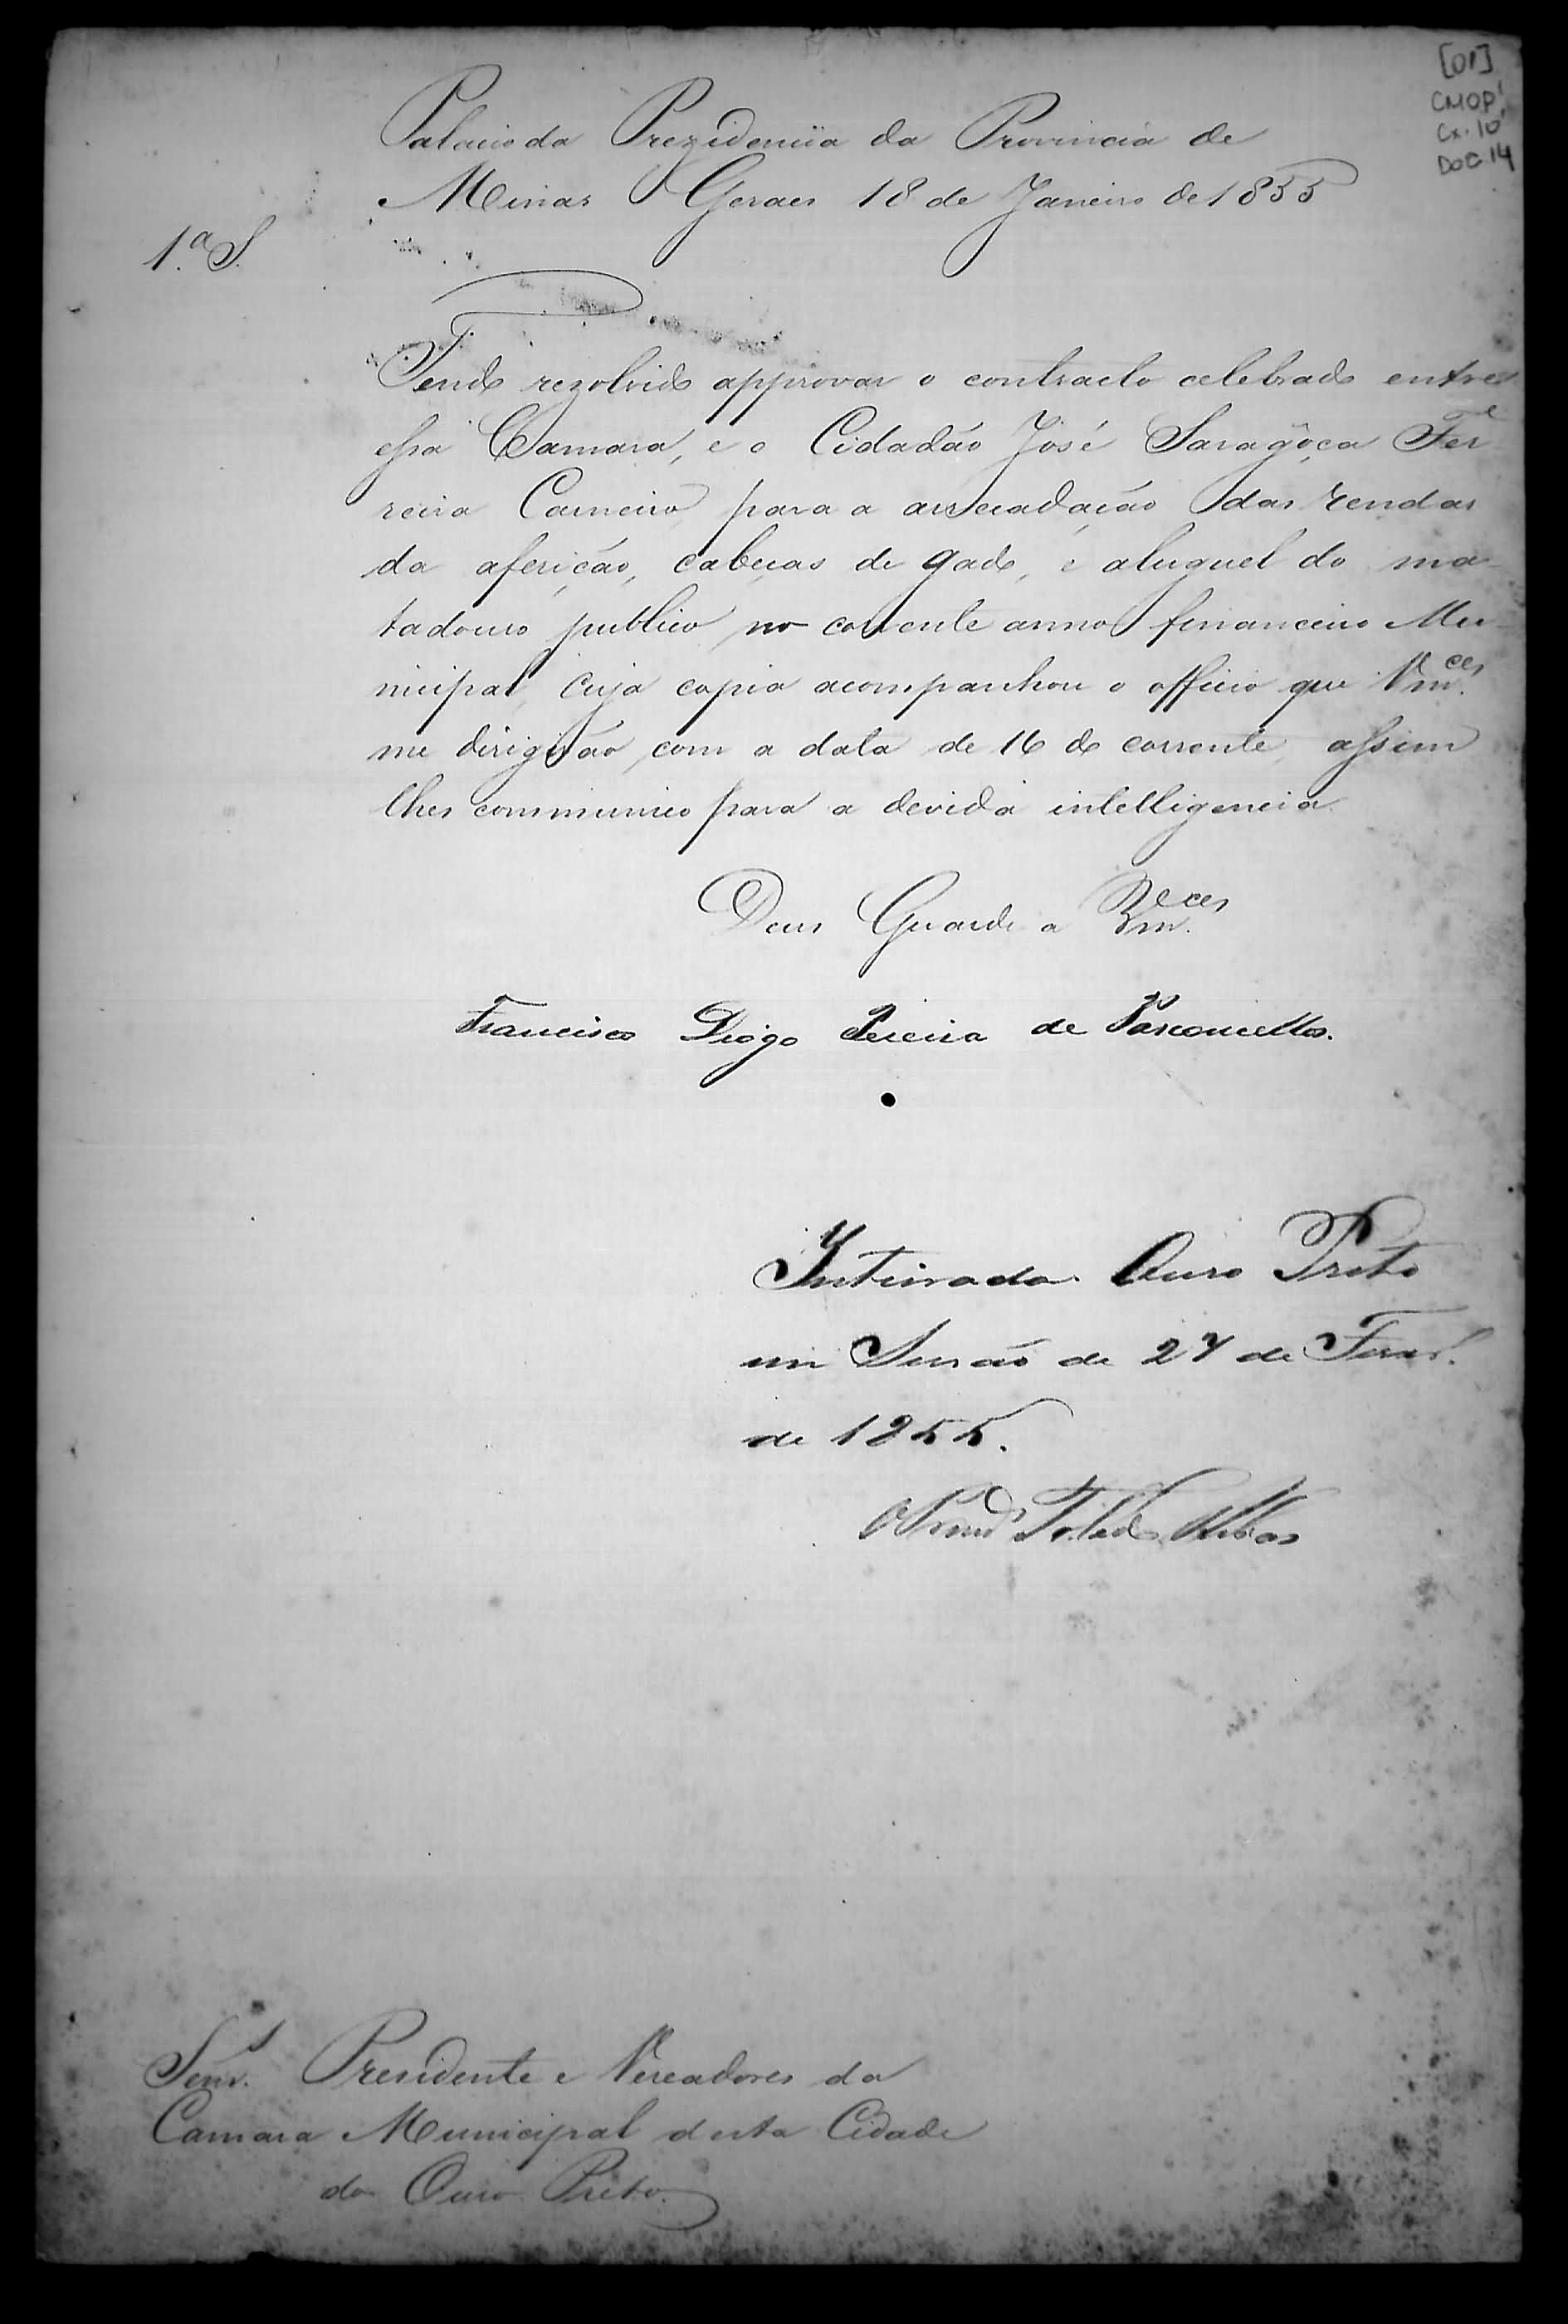 [01]
CMOP
Cx. 10
DOC 14
Palacio da Prezidencia da Provincia de
Minas Geraes 18 de Janeiro de 1855
1.ª S.
Tendo rezolvido approvar o contracto celebrado entre
essa Camara, e o Cidadão José Saragoça Fer
reira Carneiro, para a arrecadação das rendas
da aferição, cabeças de gado, e aluguel do ma
tadouro publico no corrente anno financeiro Mu
nicipal, cuja copia acompanhou o officio que Vm.ces
me dirigirão com a data de 16 do corrente, assim
lhes communico para a devida intelligencia.
Deus Guarde a Vm.ces
Francisco Diogo Pereira de Vasconcellos.
Inteirada. Ouro Preto
em Sessão de 27 de Fever.º
de 1855.
Toledo Ribas
Senr.s Presidente e Vereadores da
Camara Municipal desta Cidade
do Ouro Preto.